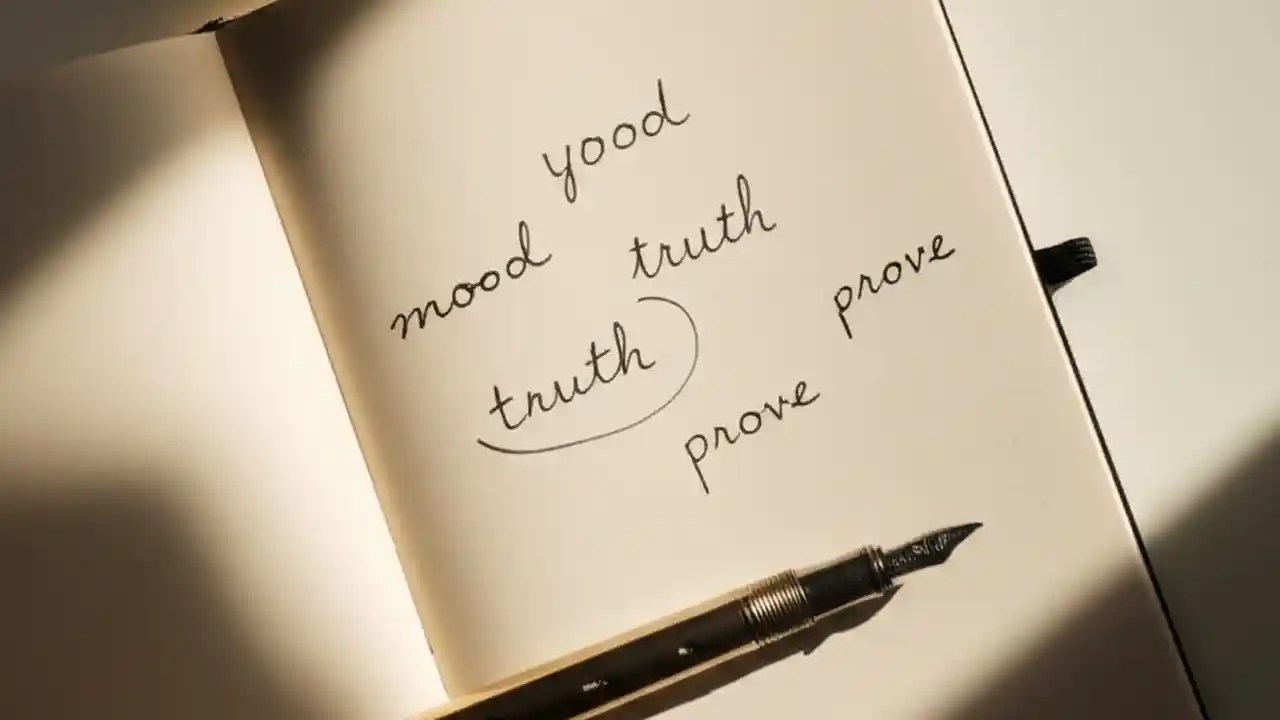 yood
mood truth
prove
truth
prove